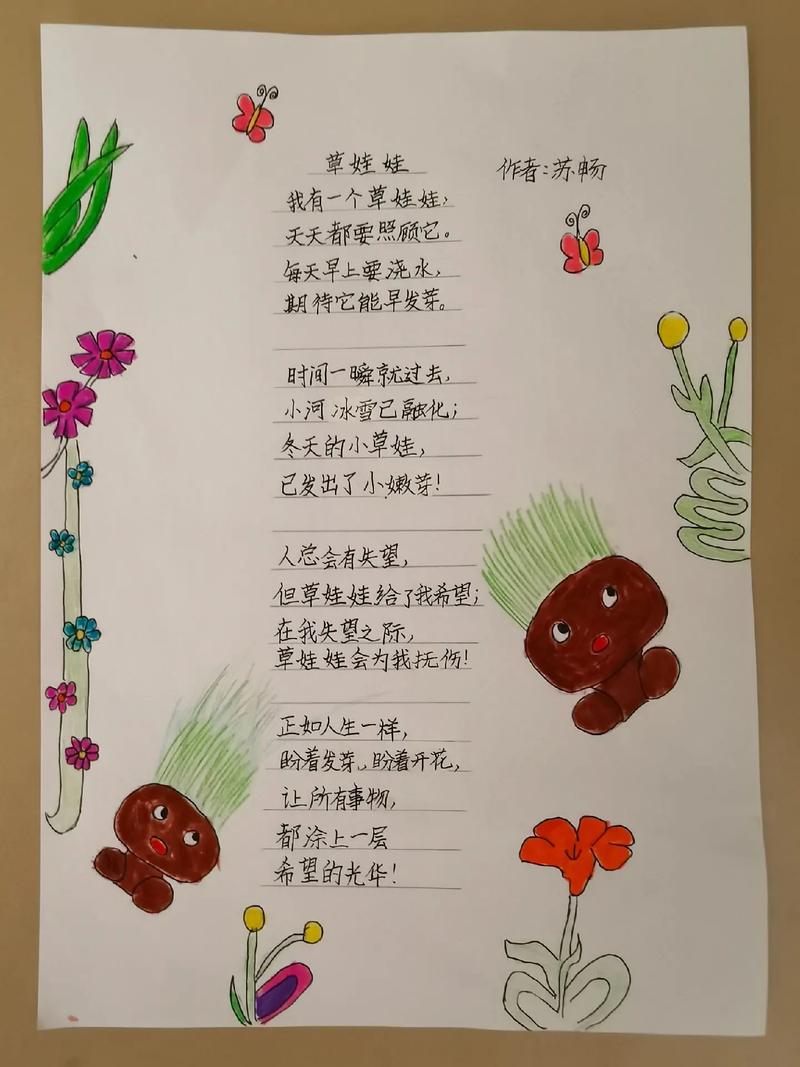 草娃娃
作者:苏畅
我有一个草娃娃,
天天都要照顾它。
每天早上要浇水,
期待它能早发芽。
时间一瞬就过去,
小河冰雪已融化;
冬天的小草娃,
已发出了小嫩芽!
人总会有失望,
但草娃娃给了我希望;
在我失望之际,
草娃娃会为我抚伤!
正如人生一样,
盼着发芽、盼着开花,
让所有事物,
都涂上一层
希望的光华!